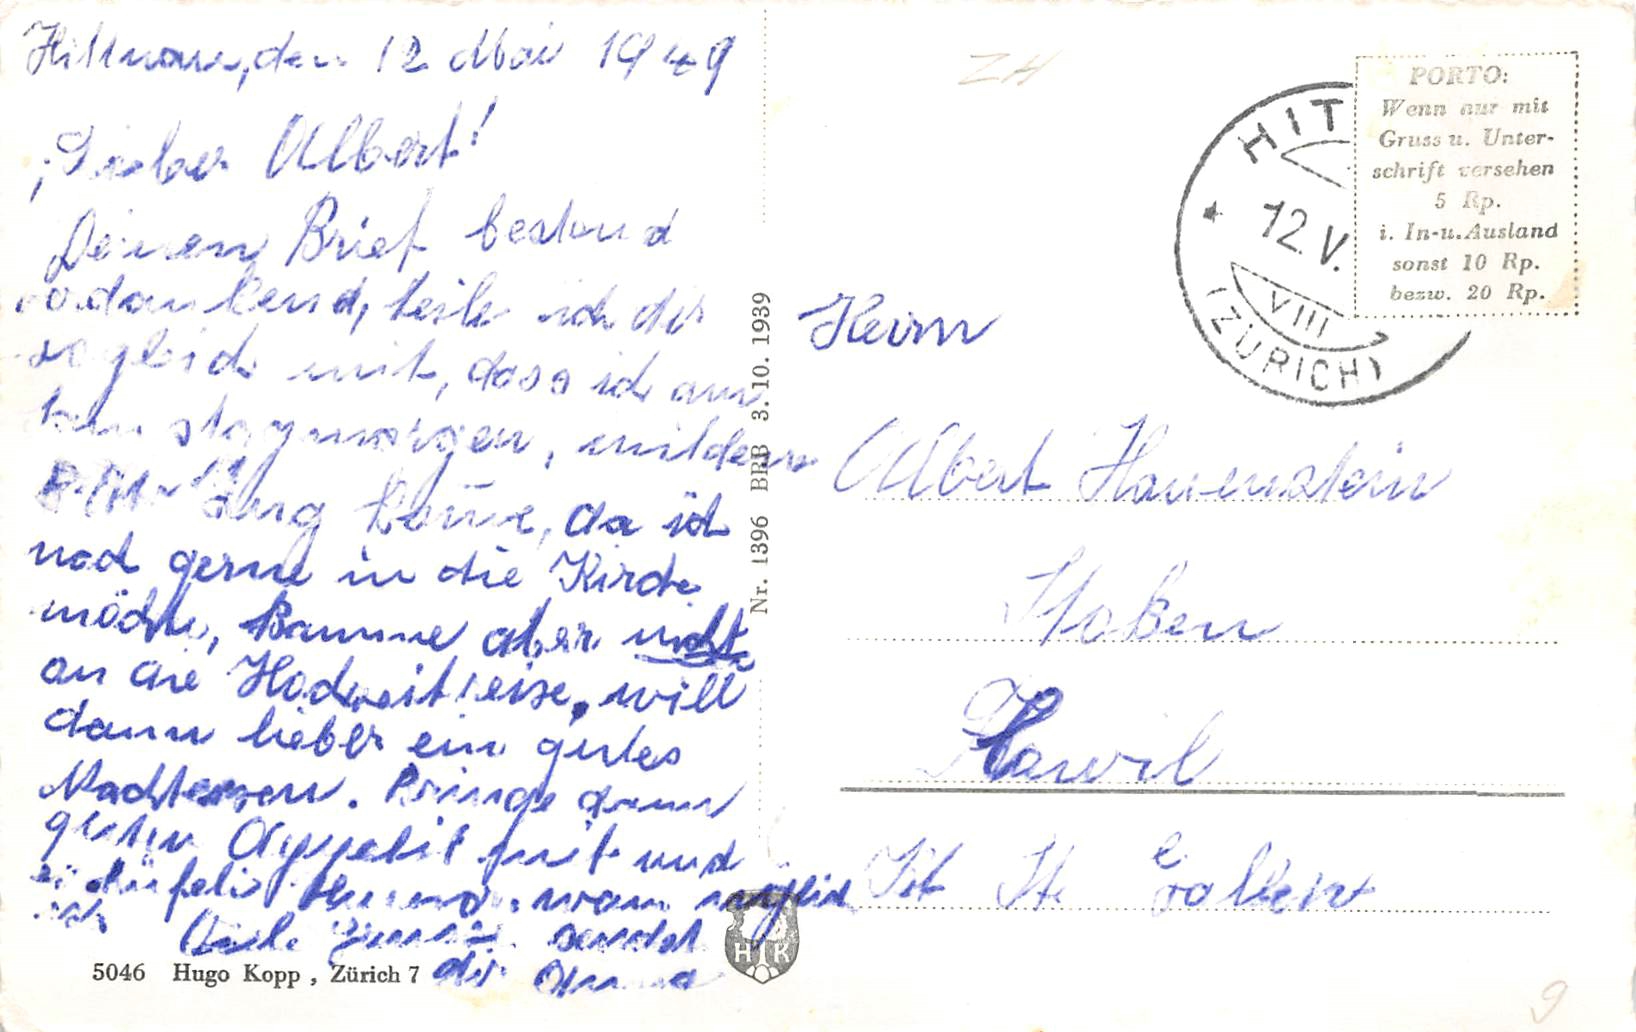 Hittnau, den 12 Mai 1949
Lieber Albert!
Deinen Brief bestend
vedankend, teile ich dir
sogleich mit, dass ich am
morgen, mit dem
Zug komme, da ich
noch gerne in die Kirche
möchte, komme aber nicht
an die Hochzeitreise, will
dann lieber ein gutes
Nachtessen. Bringe dann
guten Appetit mit und
wan möglich
Viele sendet
dir Anna
5046 Hugo Kopp, Zürich 7
Nr. 1396 BRB 3.10. 1939
HK
ZH
HIT
12. V.
VIII
(ZÜRICH)
PORTO:
Wenn nur mit
Gruss u. Unter-
schrift versehen
5 Rp.
i. In-u. Ausland
sonst 10 Rp.
bezw. 20 Rp.
Herrn
Albert Hauenstein
Staken
Flawil
Kt St Gallen
9